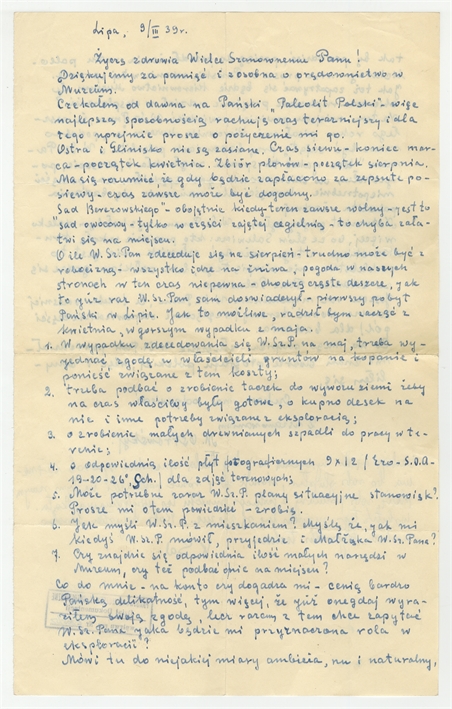 Lipa, 9/III 39r.
Życzę zdrowia Wielce Szanownemu Panu!
Dziękujemy za pamięć i zosobna o orędownictwo w
Muzeum.
Czekałem od dawna na Pański "Paleolit Polski" więc
najlepszą sposobnością rachują czas teraźniejszy i dla
tego uprzejmie proszę o pożyczenie mi go.
Ostra i Glinisko nie są zasiane. Czas siewu - koniec mar-
ca - początek kwietnia. Zbiór plonów - początek sierpnia.
Ma się rozumieć że gdy będzie zapłacono za zepsute po-
siewy - czas zawsze może być dogodny.
"Sad Berezowskiego" - obojętnie kiedy - teren zawsze wolny - jest to
"sad owocowy" - tylko w części zajętej cegielnią - to chyba zała-
twi się na miejscu.
O ile W.Sz.Pan zdecyduje się na sierpień - trudno może być z
robocizną - wszystko idzie na żniwa, pogoda w naszych
stronach w ten czas niepewna - chodzą częste deszcze, jak
to już raz W.Sz.Pan sam doświadczył - pierwszy pobyt
Pański w Lipie. Jak to możliwe, radziłbym zacząć z
kwietnia, w gorszym wypadku z maja.
1. W wypadku zdecydowania się W.Sz.P. na maj, trzeba wy-
jednać zgodę u właścicieli gruntów na kopanie i
ponieść związane z tem koszty;
2. trzeba podbać o zrobienie taczek do wywozu ziemi żeby
na czas właściwy były gotowe, o kupno desek na
nie i inne potrzeby związane z eksploracją;
3. o zrobienie małych drewnianych szpadli do pracy w te-
renie;
4. o odpowiednią ilość płyt fotograficznych 9x12 /
19-20-26° Sch./ dla zdjęć terenowych;
5. Może potrzebne zaraz W.Sz.P. plany situacyjne stanowisk?
Proszę mi otem powiedzieć - zrobię.
6. Jak myśli W.Sz.P. z mieszkaniem? Myślę że, jak mi
kiedyś W.Sz.P. mówił, przyjedzie i Małżąka W.Sz.Pana?
7. Czy znajdzie się odpowiednia ilość małych narzędzi w
Muzeum, czy też podbać o nie na miejscu?
Co do mnie - na konto czy dogadza mi - cenię bardzo
Pańską delikatność, tym więcej, że już onegdaj wyra-
ziłem swoją zgodę, lecz zarazem z tem chcę zapytać
W.Sz.Pana jaka będzie mi przyznaczona rola w
eksploracii?
Mówi tu do niejakiej miary ambicia, nu i naturalny,